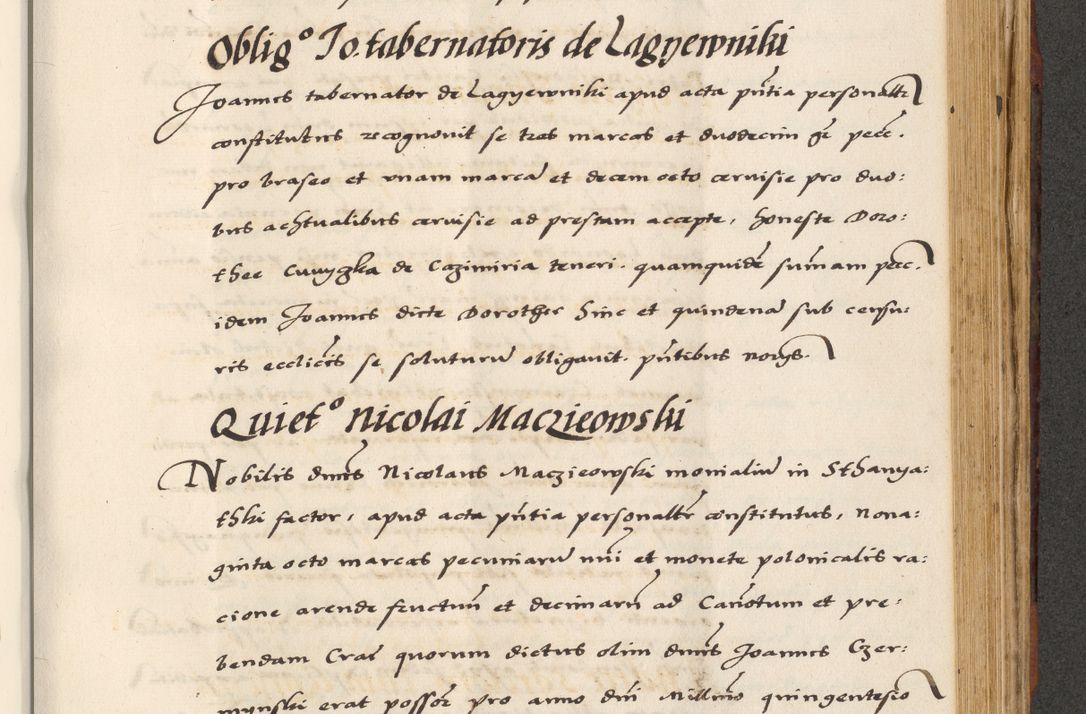 Oblig° Jo. tabernatoris de Lagyewniki
Joannes tabernator de Lagyewniki apud acta pñtia personalr
constitutus recognovit se tres marcas et duodecim gr̃ pecc.
pro braseo et unam marcã et decem octo cervisie pro duo:
bus achtualibus cervisie ad prestam accepte, honeste Doro:
thee Cuvyczka de Cazimiria teneri. quamquidẽ sum̃am pecc.
idem Joannes dicte Dorothee hinc et quindenã sub censu:
ris ecclicis se soluturũ obligavit. pñtibus norys.
Quiet° Nicolai Maczieowski
Nobilis dnũs Nicolaus Maczieowski monialiũ in Sthanya:
thki factor, apud acta pñtia personalr constitutus, nona:
ginta octo marcas pecuniarũ nũi et monete polonicalis ra:
cione arende fructuũ et decimarũ ad Canõtum et pre:
bendam Crac̃ quorum dictus olim dnũs Joannes Czer:
mynski erat possor̃ pro anno dni Millmo quingentesio